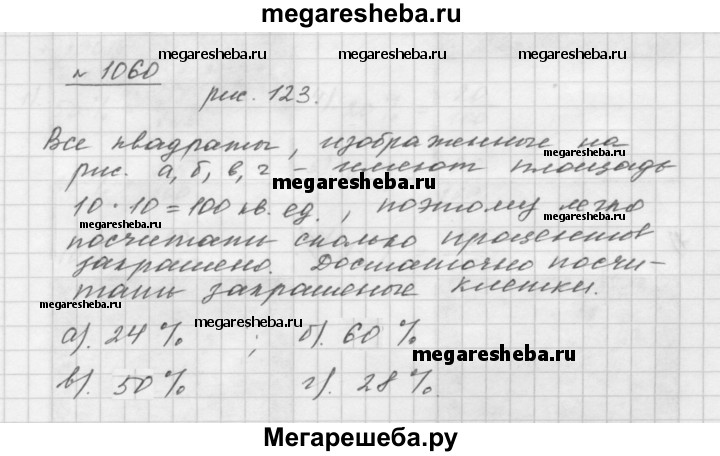 megaresheba.ru
megaresheba.ru megaresheba.ru
№ 1060
рис. 123.
Все квадраты, изображенные на
megaresheba.ru
рис. а, б, в, г - имеют площадь
megaresheba.ru
10 · 10 = 100 кв. ед., поэтому легко
megaresheba.ru megaresheba.ru
посчитать сколько процентов
закрашено. Достаточно посчи-
тать закрашеные клетки.
megaresheba.ru
megaresheba.ru
а). 24 % ; б). 60 %
megaresheba.ru
в). 50 % г). 28 %.
Мегарешеба.ру